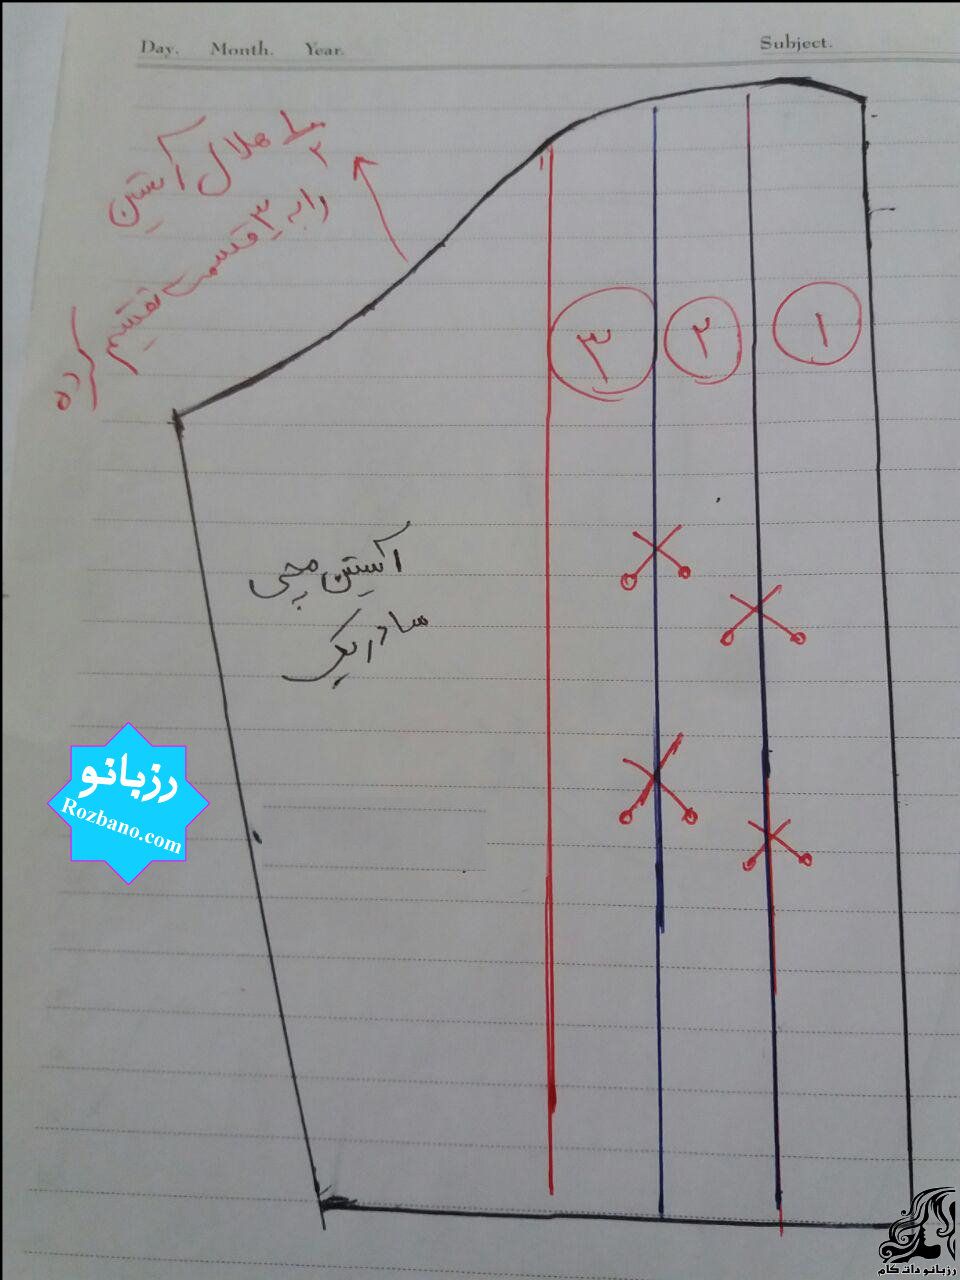 Day. Month. Year.
Subject.
۱/۲ هلال آستین
را به ۳ قسمت تقسیم کرده
۳
۲
۱
آستین مچی
ساد ریک
رزبانو
Rozbano.com
رزبانو دات کام